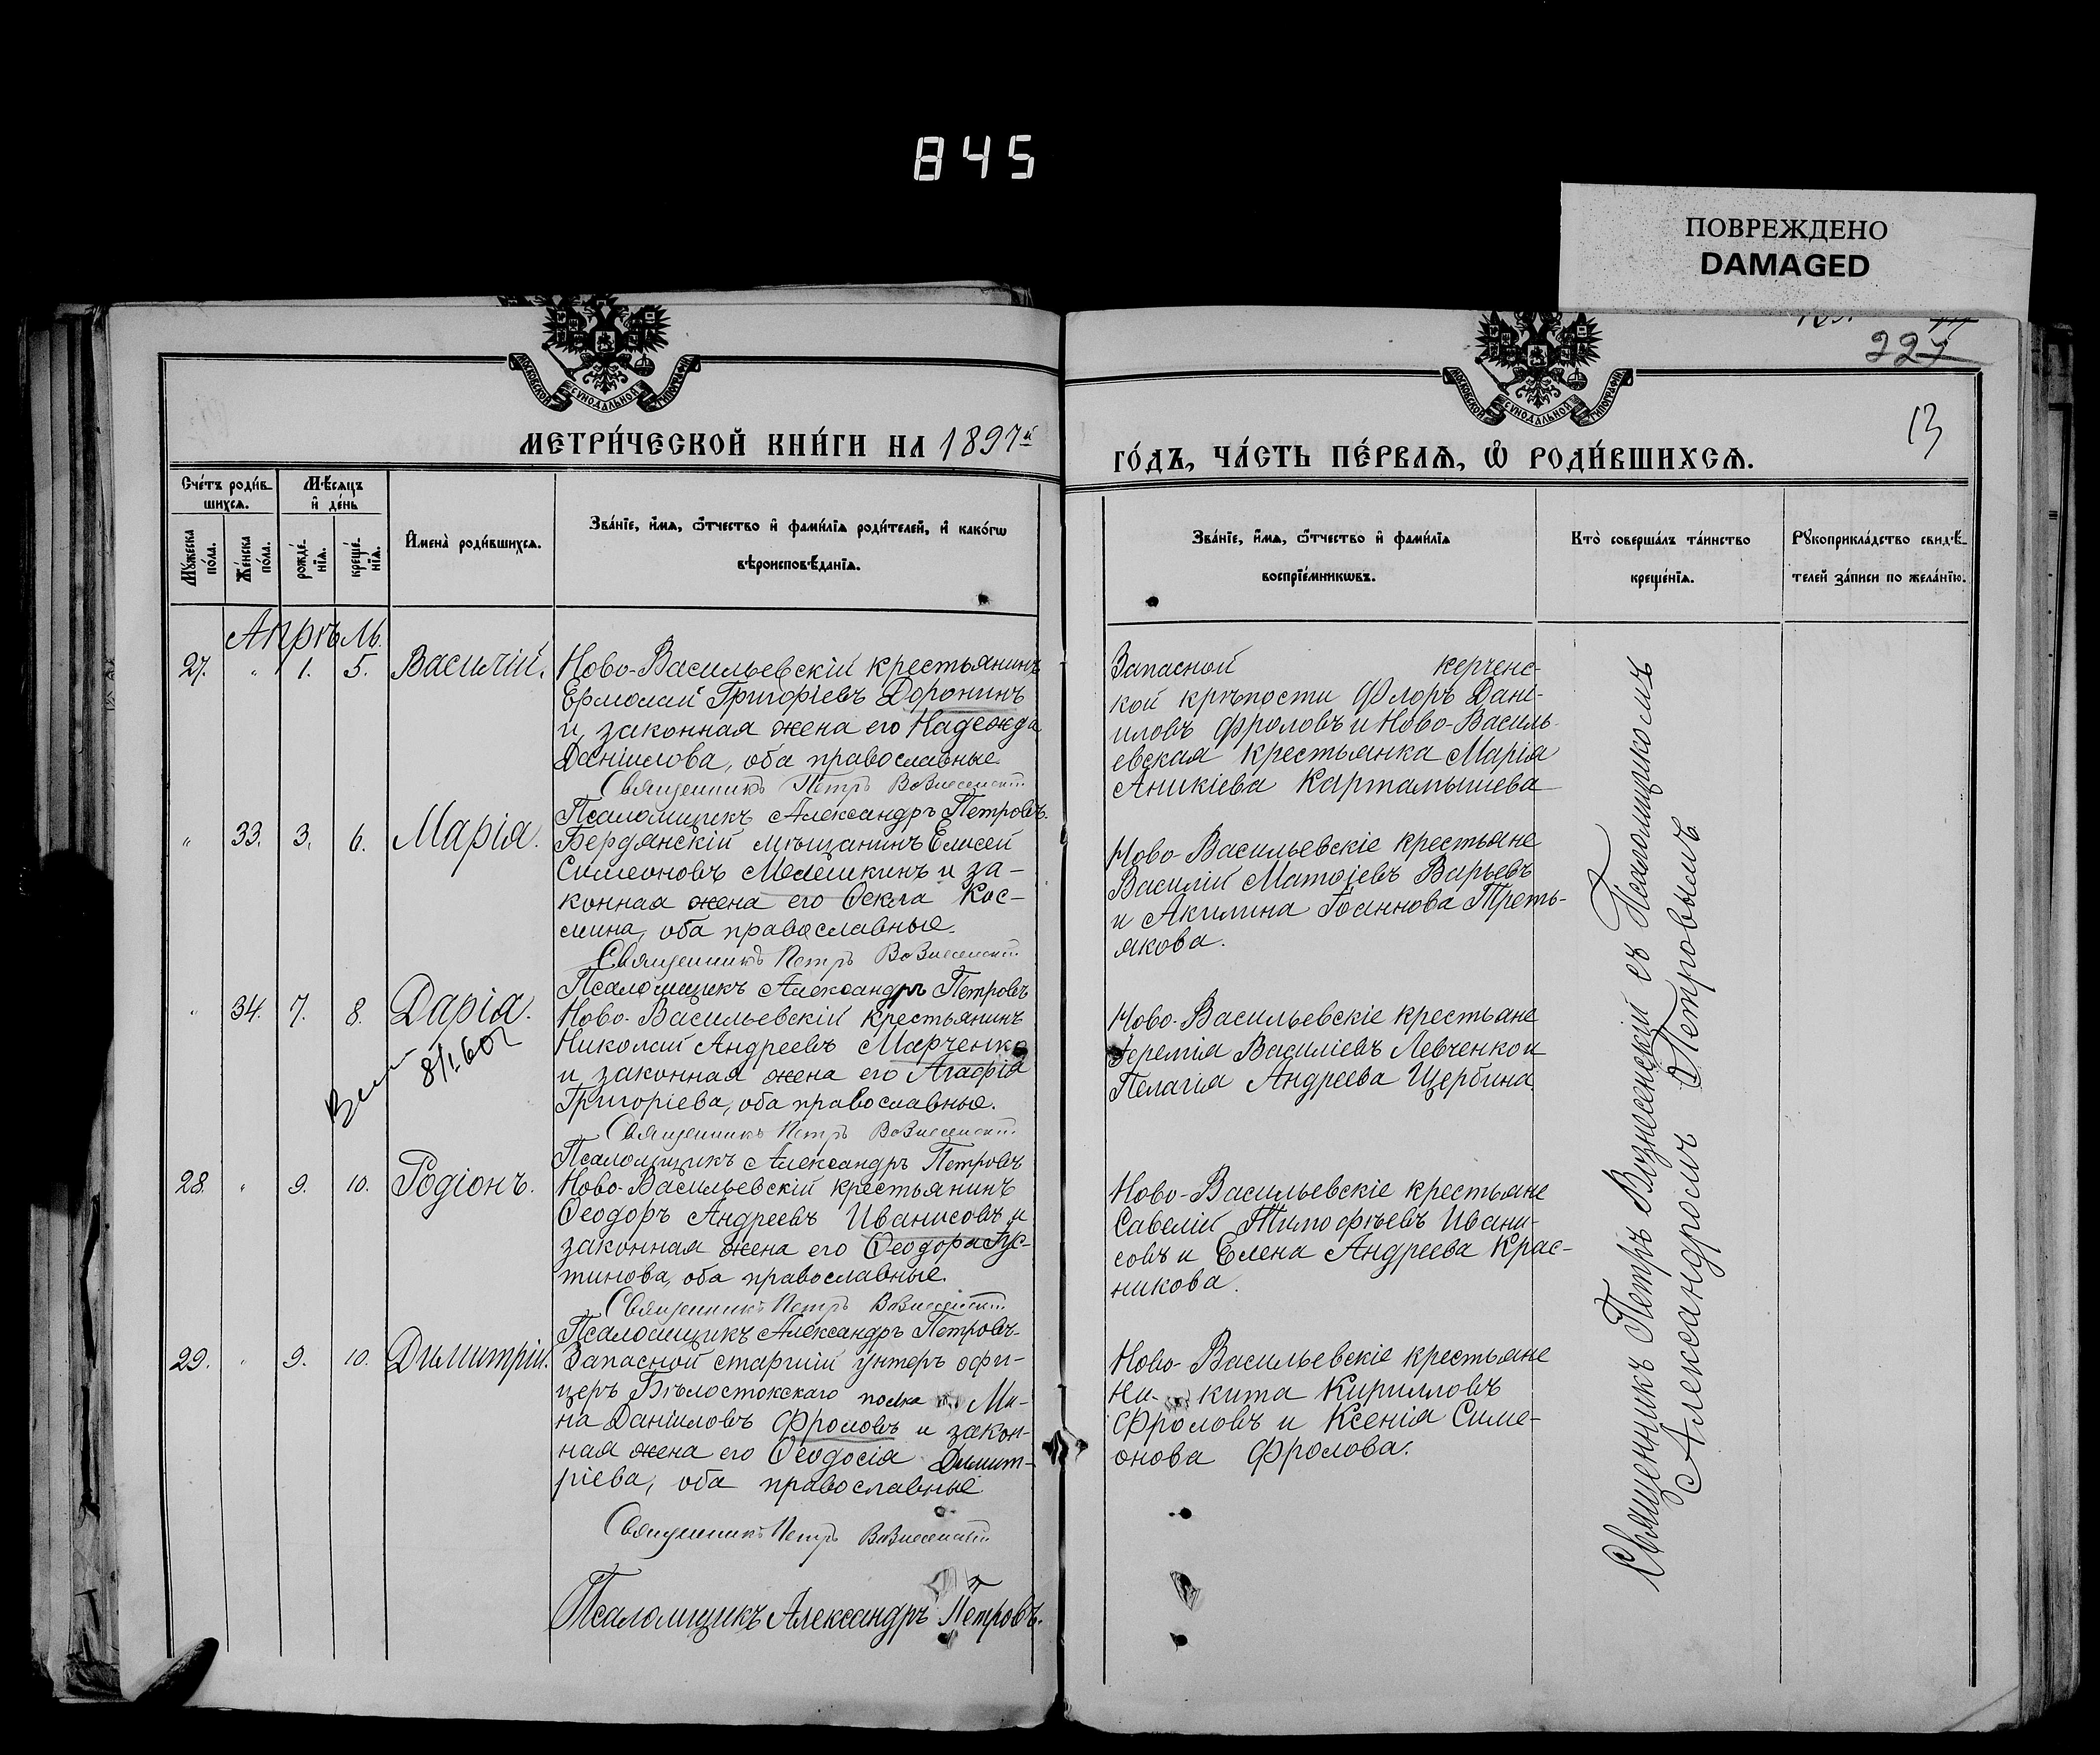 845
ПОВРЕЖДЕНО
DAMAGED
227
13
МОСКОВСКОЙ СѴНОДАЛЬНОЙ ТИПОГРАФІИ
МОСКОВСКОЙ СѴНОДАЛЬНОЙ ТИПОГРАФІИ
МЕТРИ́ЧЕСКОЙ КНИ́ГИ НА 1897й
ГО́ДЪ, ЧА́СТЬ ПЕ́РВАѦ, Ѡ҆ РОДИ́ВШИХСѦ.
Сче́тъ роди́в-
шихсѧ.
Мѣ́сѧцъ
и҆ де́нь
Мꙋ́жеска
по́ла.
Же́нска
по́ла.
рожде́-
нїѧ.
креще́-
нїѧ.
И҆мена̀ роди́вшихсѧ.
Зва́нїе, и҆́мѧ, ѻ҆́тчество и҆ фами́лїѧ роди́телей, и҆ како́гѡ
вѣроисповѣ́данїѧ.
Зва́нїе, и҆́мѧ, ѻ҆́тчество и҆ фами́лїѧ
воспрїе́мникѡвъ.
Кто̀ соверша́лъ та́инство
креще́нїѧ.
Рꙋкоприкла́дство свидѣ́-
телей за́писи по жела́нїю.
Апрѣль.
27. " 1. 5. Василій.
Ново-Васильевскій крестьянинъ
Ермолай Григоріевъ Доронинъ
и законная жена его Надежда
Даніилова, оба православные.
Священникъ Петръ Вознесенскій
Псаломщикъ Александръ Петровъ.
Запасной керченс-
кой крѣпости Флоръ Дані-
иловъ Фроловъ и Ново-Василь-
евская крестьянка Марія
Аникіева Картамышева
" 33. 3. 6. Марія.
Бердянскій мѣщанинъ Елисей
Симеоновъ Мелешкинъ и за-
конная жена его Ѳекла Кос-
мина, оба православные.
Священникъ Петръ Вознесенскій
Псаломщикъ Александръ Петровъ
Ново-Васильевскіе крестьяне
Василій Матѳіевъ Варьевъ
и Акилина Іоаннова Треть-
якова.
" 34. 7. 8. Дарія.
8/I.60г
Ново-Васильевскій крестьянинъ
Николай Андреевъ Марченко
и законная жена его Агафія
Григоріева, оба православные.
Священникъ Петръ Вознесенскій
Псаломщикъ Александръ Петровъ
Ново-Васильевскіе крестьяне
Іеремія Василіевъ Левченко и
Пелагія Андреева Щербина
28. " 9. 10. Родіонъ.
Ново-Васильевскій крестьянинъ
Ѳеодоръ Андреевъ Иванисовъ и
законная жена его Ѳеодора Іус-
тинова, оба православные.
Священникъ Петръ Вознесенскій
Псаломщикъ Александръ Петровъ.
Ново-Васильевскіе крестьяне
Савелій Тимофѣевъ Ивани-
совъ и Елена Андреева Крас-
никова.
29. " 9. 10. Димитрій.
Запасной старшій унтеръ офи-
церъ Бѣлостокскаго полка Ми-
на Даніиловъ Фроловъ и закон-
ная жена его Ѳеодосія Димит-
ріева, оба православные
Священникъ Петръ Вознесенскій
Псаломщикъ Александръ Петровъ.
Ново-Васильевскіе крестьяне
Ни- кита Кирилловъ
Фроловъ и Ксенія Симе-
онова Фролова.
Священникъ Петръ Вознесенскій съ Псаломщикомъ
Александромъ Петровымъ